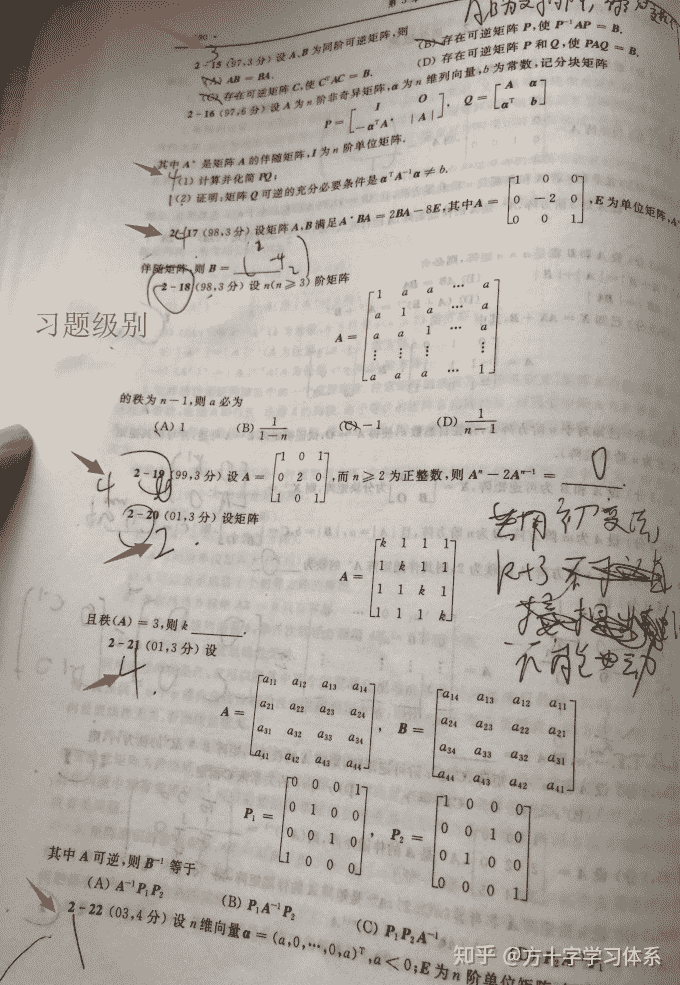 · 90 ·
2-15 (97,3分) 设 A,B 为同阶可逆矩阵,则
(A) AB = BA.
(B) 存在可逆矩阵 P,使 P⁻¹AP = B.
(C) 存在可逆矩阵 C,使 CᵀAC = B.
(D) 存在可逆矩阵 P 和 Q,使 PAQ = B.
2-16 (97,6分) 设 A 为 n 阶非奇异矩阵,α 为 n 维列向量,b 为常数,记分块矩阵
P = [I O; -αᵀA* |A|], Q = [A α; αᵀ b]
其中 A* 是矩阵 A 的伴随矩阵,I 为 n 阶单位矩阵.
4 (1) 计算并化简 PQ;
(2) 证明:矩阵 Q 可逆的充分必要条件是 αᵀA⁻¹α ≠ b.
2-17 (98,3分) 设矩阵 A,B 满足 A*BA = 2BA - 8E,其中 A = [1 0 0; 0 -2 0; 0 0 1], E 为单位矩阵, A*
伴随矩阵,则 B = 2 -4 2
2-18 (98,3分) 设 n(n ≥ 3) 阶矩阵
习题级别
A = [1 a a ⋯ a; a 1 a ⋯ a; a a 1 ⋯ a; ⋮ ⋮ ⋮ ⋮; a a a ⋯ 1]
的秩为 n-1,则 a 必为
(A) 1 (B) 1/(1-n) (C) -1 (D) 1/(n-1)
2-19 (99,3分) 设 A = [1 0 1; 0 2 0; 1 0 1], 而 n ≥ 2 为正整数,则 Aⁿ - 2Aⁿ⁻¹ = 0.
4
2-20 (01,3分) 设矩阵
2
A = [k 1 1 1; 1 k 1 1; 1 1 k 1; 1 1 1 k]
k+3
且秩(A) = 3,则 k ______.
2-21 (01,3分) 设
4
A = [a₁₁ a₁₂ a₁₃ a₁₄; a₂₁ a₂₂ a₂₃ a₂₄; a₃₁ a₃₂ a₃₃ a₃₄; a₄₁ a₄₂ a₄₃ a₄₄], B = [a₁₄ a₁₃ a₁₂ a₁₁; a₂₄ a₂₃ a₂₂ a₂₁; a₃₄ a₃₃ a₃₂ a₃₁; a₄₄ a₄₃ a₄₂ a₄₁]
P₁ = [0 0 0 1; 0 1 0 0; 0 0 1 0; 1 0 0 0], P₂ = [1 0 0 0; 0 0 1 0; 0 1 0 0; 0 0 0 1]
其中 A 可逆,则 B⁻¹ 等于
(A) A⁻¹P₁P₂ (B) P₁A⁻¹P₂ (C) P₁P₂A⁻¹
2-22 (03,4分) 设 n 维向量 α = (a,0,⋯,0,a)ᵀ, a < 0; E 为 n 阶单位矩阵
知乎 @方十字学习体系